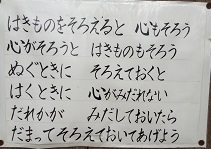 はきものをそろえると 心もそろう
心がそろうと はきものもそろう
ぬぐときに そろえておくと
はくときに 心がみだれない
だれかが みだしておいたら
だまってそろえておいてあげよう